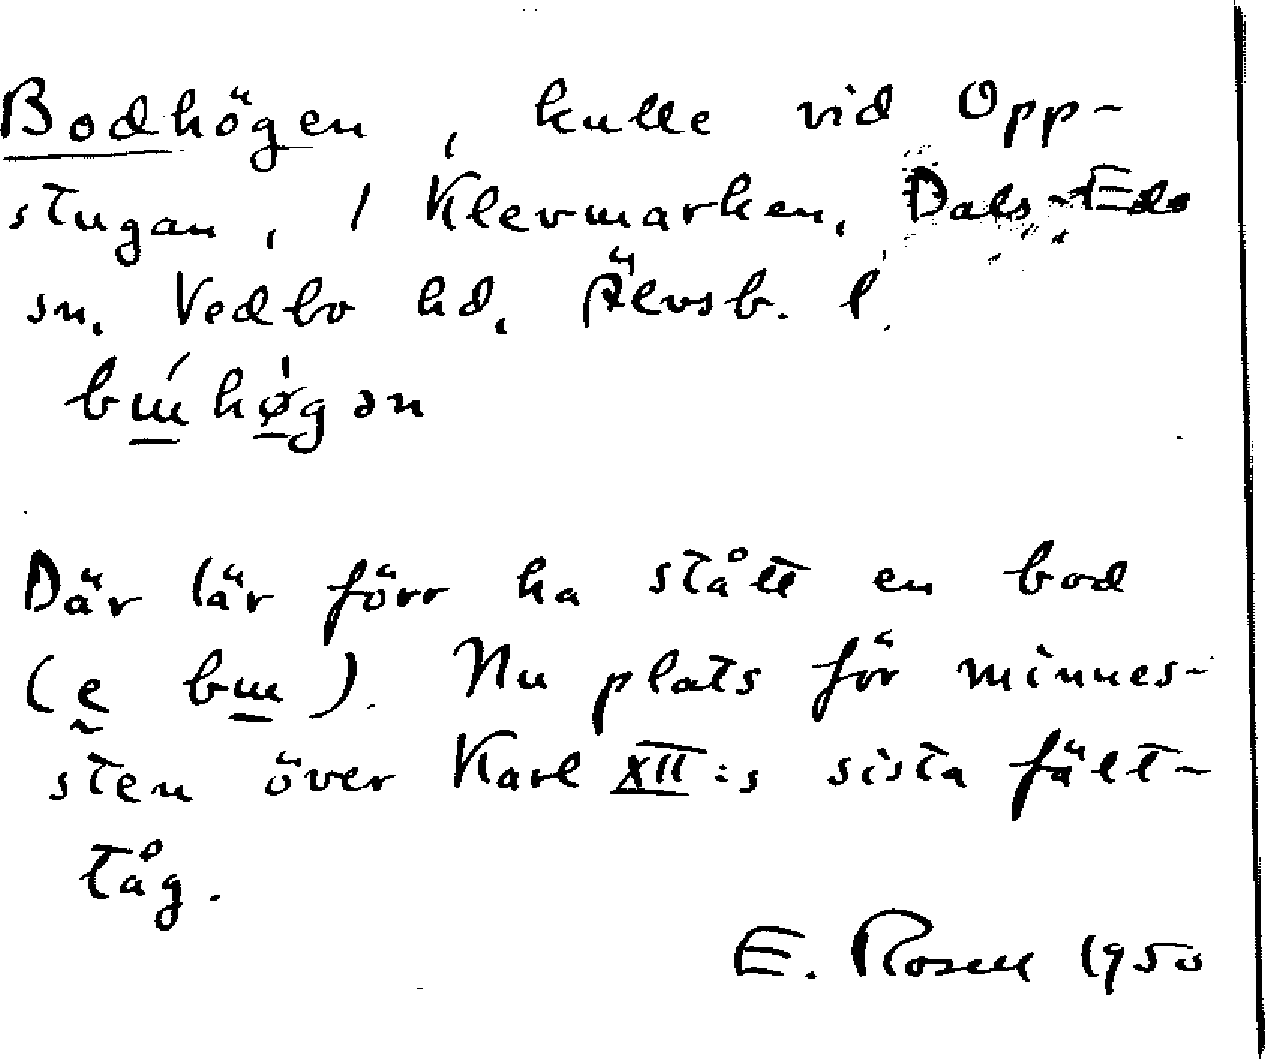 Bodhögen, kulle vid Opp-
stugan, 1 Klevmarken, Dals-Eds
sn, Vedbo hd, Älvsb. l.
Där lär förr ha stått en bod
(e bɯ). Nu plats för minnes-
sten över Karl XII:s sista fält-
tåg.
E. Rosell 1950